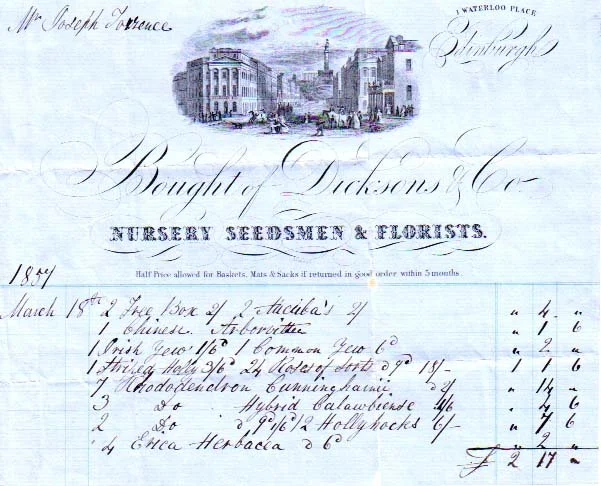 Mr Joseph Torrence
1 WATERLOO PLACE
Edinburgh
Bought of Dicksons & Co
NURSERY SEEDSMEN & FLORISTS.
1857
Half Price allowed for Baskets, Mats & Sacks if returned in good order within 3 months
March 18th 2 Tree Box 2/ 2 Aucuba's 2/ " 4 "
1 Chinese Arborvitæ " 1 6
1 Irish Yew 1/6d 1 Common Yew 6d " 2 "
1 Striped Holly 3/6d 24 Roses of sorts d 9d 18/- 1 1 6
7 Rhododendron Cunninghamii d 2/ " 14 "
3 Do Hybrid Catawbiense 1/6 " 4 6
2 Do d 9d 1/6 12 Hollyhocks 6/- " 7 6
4 Erica Herbacea d 6d " 2 "
£ 2 17 "